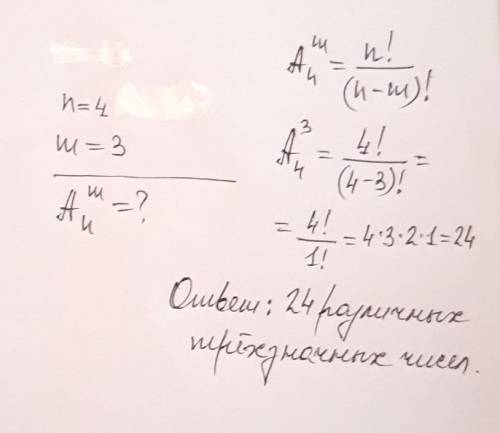 n=4
m=3
Aₙᵐ=?
Aₙᵐ = n!/(n-m)!
A₄³ = 4!/(4-3)! =
= 4!/1! = 4·3·2·1=24
Ответ: 24 различных
трёхзначных чисел.